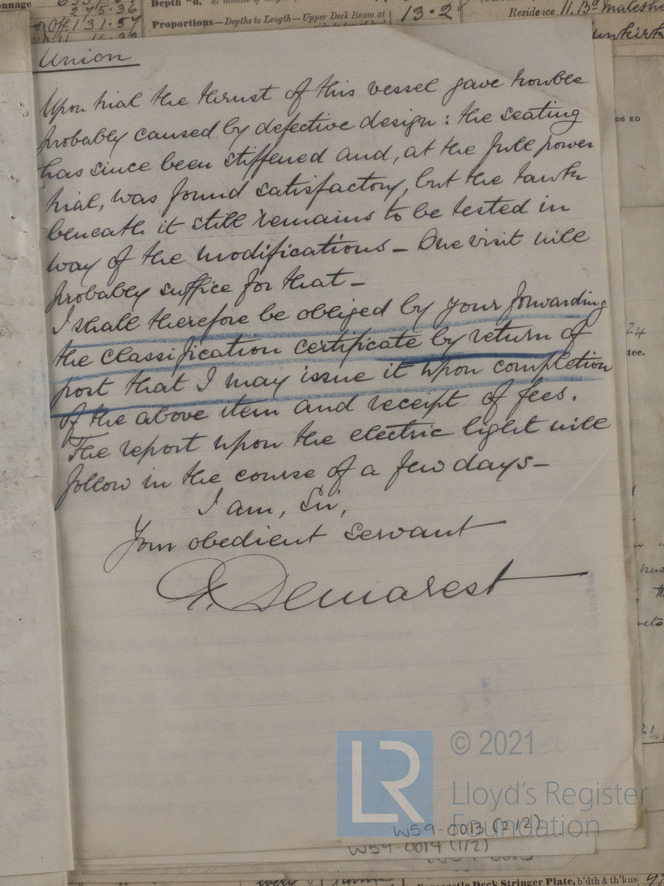 Depth "d,
Proportions—Depths to Length—Upper Deck Beam at
13.2
Residence 11. Bd
275.36
131.57
Union
Upon trial the thrust of this vessel gave trouble
probably caused by defective design: the seating
has since been stiffened and, at the full power
trial, was found satisfactory, but the tank
beneath it still remains to be tested in
way of the modifications — One visit will
probably suffice for that —
I shall therefore be obliged by your forwarding
the classification certificate by return of
post that I may issue it upon completion
of the above item and receipt of fees.
The report upon the electric light will
follow in the course of a few days —
I am, Sir,
Your obedient servant
Demarest
24
tee.
LR
© 2021
Lloyd's Register
Foundation
W59-0013 (2/2)
W59-0014 (1/2)
Deck Stringer Plate, b'dth & th'kns